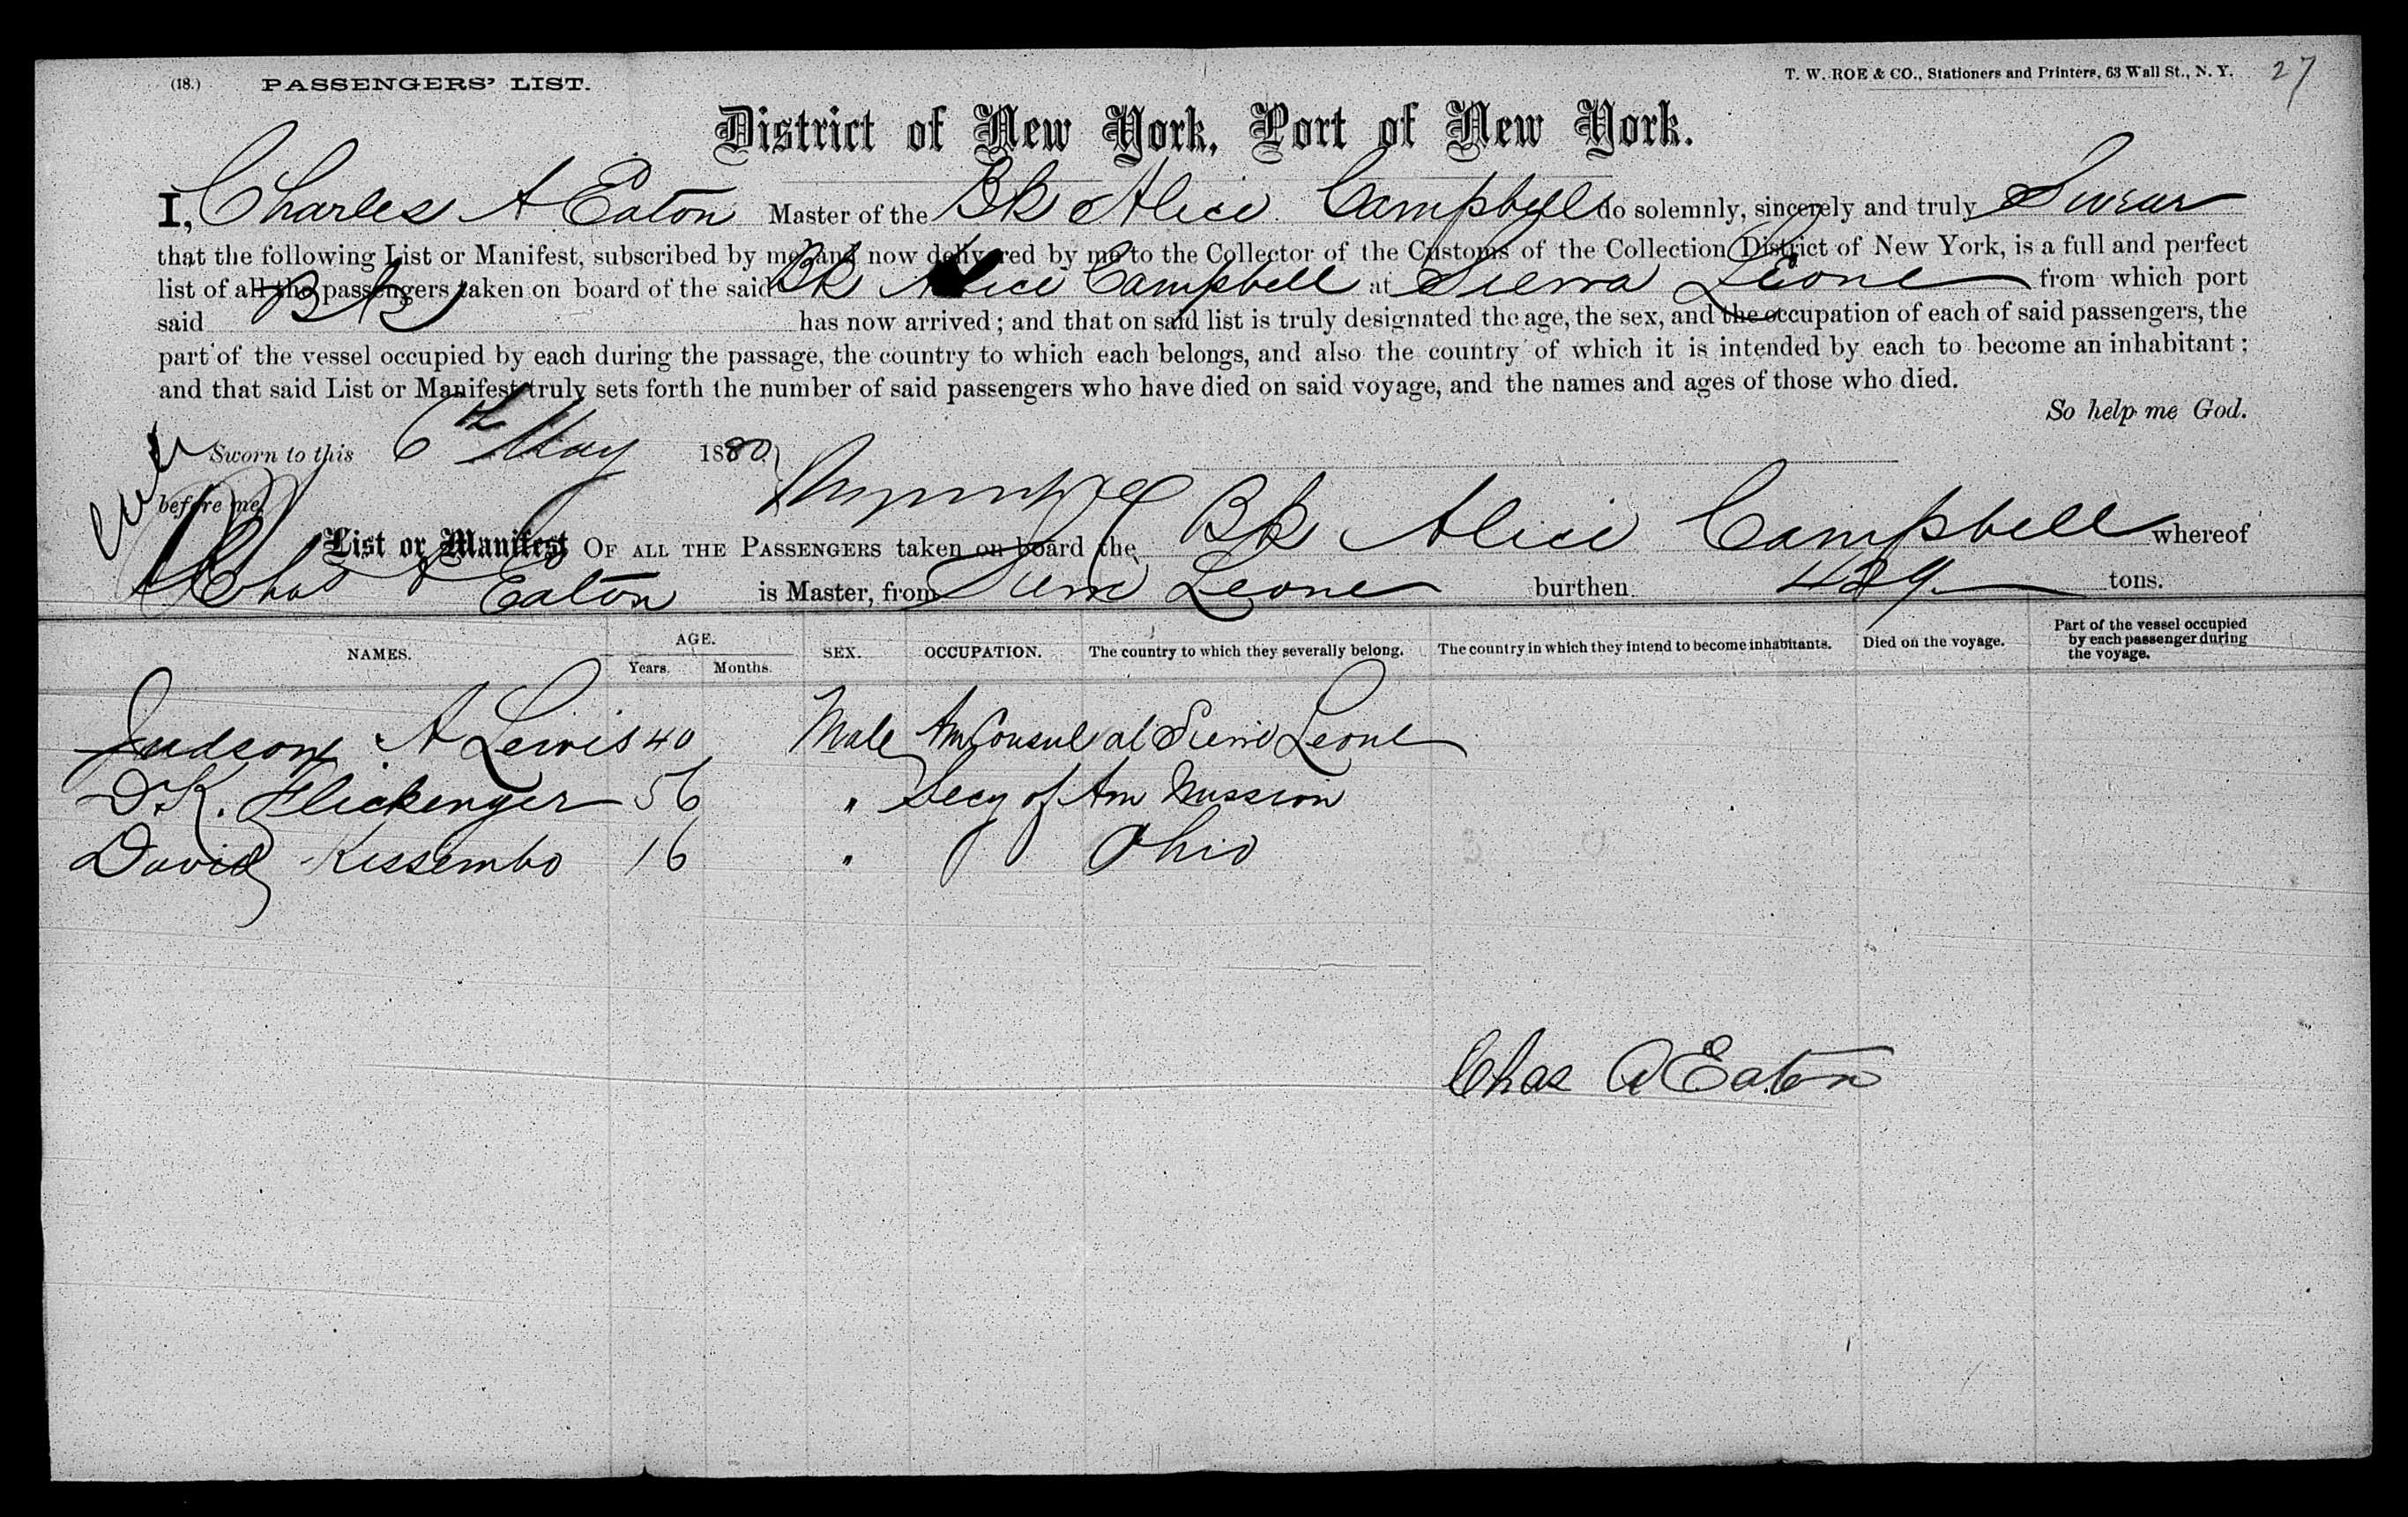 (18.) PASSENGERS' LIST. T. W. ROE & CO., Stationers and Printers, 63 Wall St., N. Y. 27
District of New York, Port of New York.
I, Charles A Eaton Master of the Bk Alice Campbell do solemnly, sincerely and truly Swear
that the following List or Manifest, subscribed by me, and now delivered by me to the Collector of the Customs of the Collection District of New York, is a full and perfect
list of all the passengers taken on board of the said Bk Alice Campbell at Sierra Leone from which port
said Bk has now arrived; and that on said list is truly designated the age, the sex, and the occupation of each of said passengers, the
part of the vessel occupied by each during the passage, the country to which each belongs, and also the country of which it is intended by each to become an inhabitant;
and that said List or Manifest truly sets forth the number of said passengers who have died on said voyage, and the names and ages of those who died.
So help me God.
Sworn to this 6th May 1880
before me
List or Manifest OF ALL THE PASSENGERS taken on board the Bk Alice Campbell whereof
Chas A Eaton is Master, from Sierra Leone burthen 429 tons.
NAMES. AGE. Years. Months. SEX. OCCUPATION. The country to which they severally belong. The country in which they intend to become inhabitants. Died on the voyage. Part of the vessel occupied by each passenger during the voyage.
Judson A Lewis 40 Male Am Consul at Sierra Leone
D.K. Flickenger 56 " Secy of Am Mission
David Kissembo 16 " Ohio
Chas A Eaton